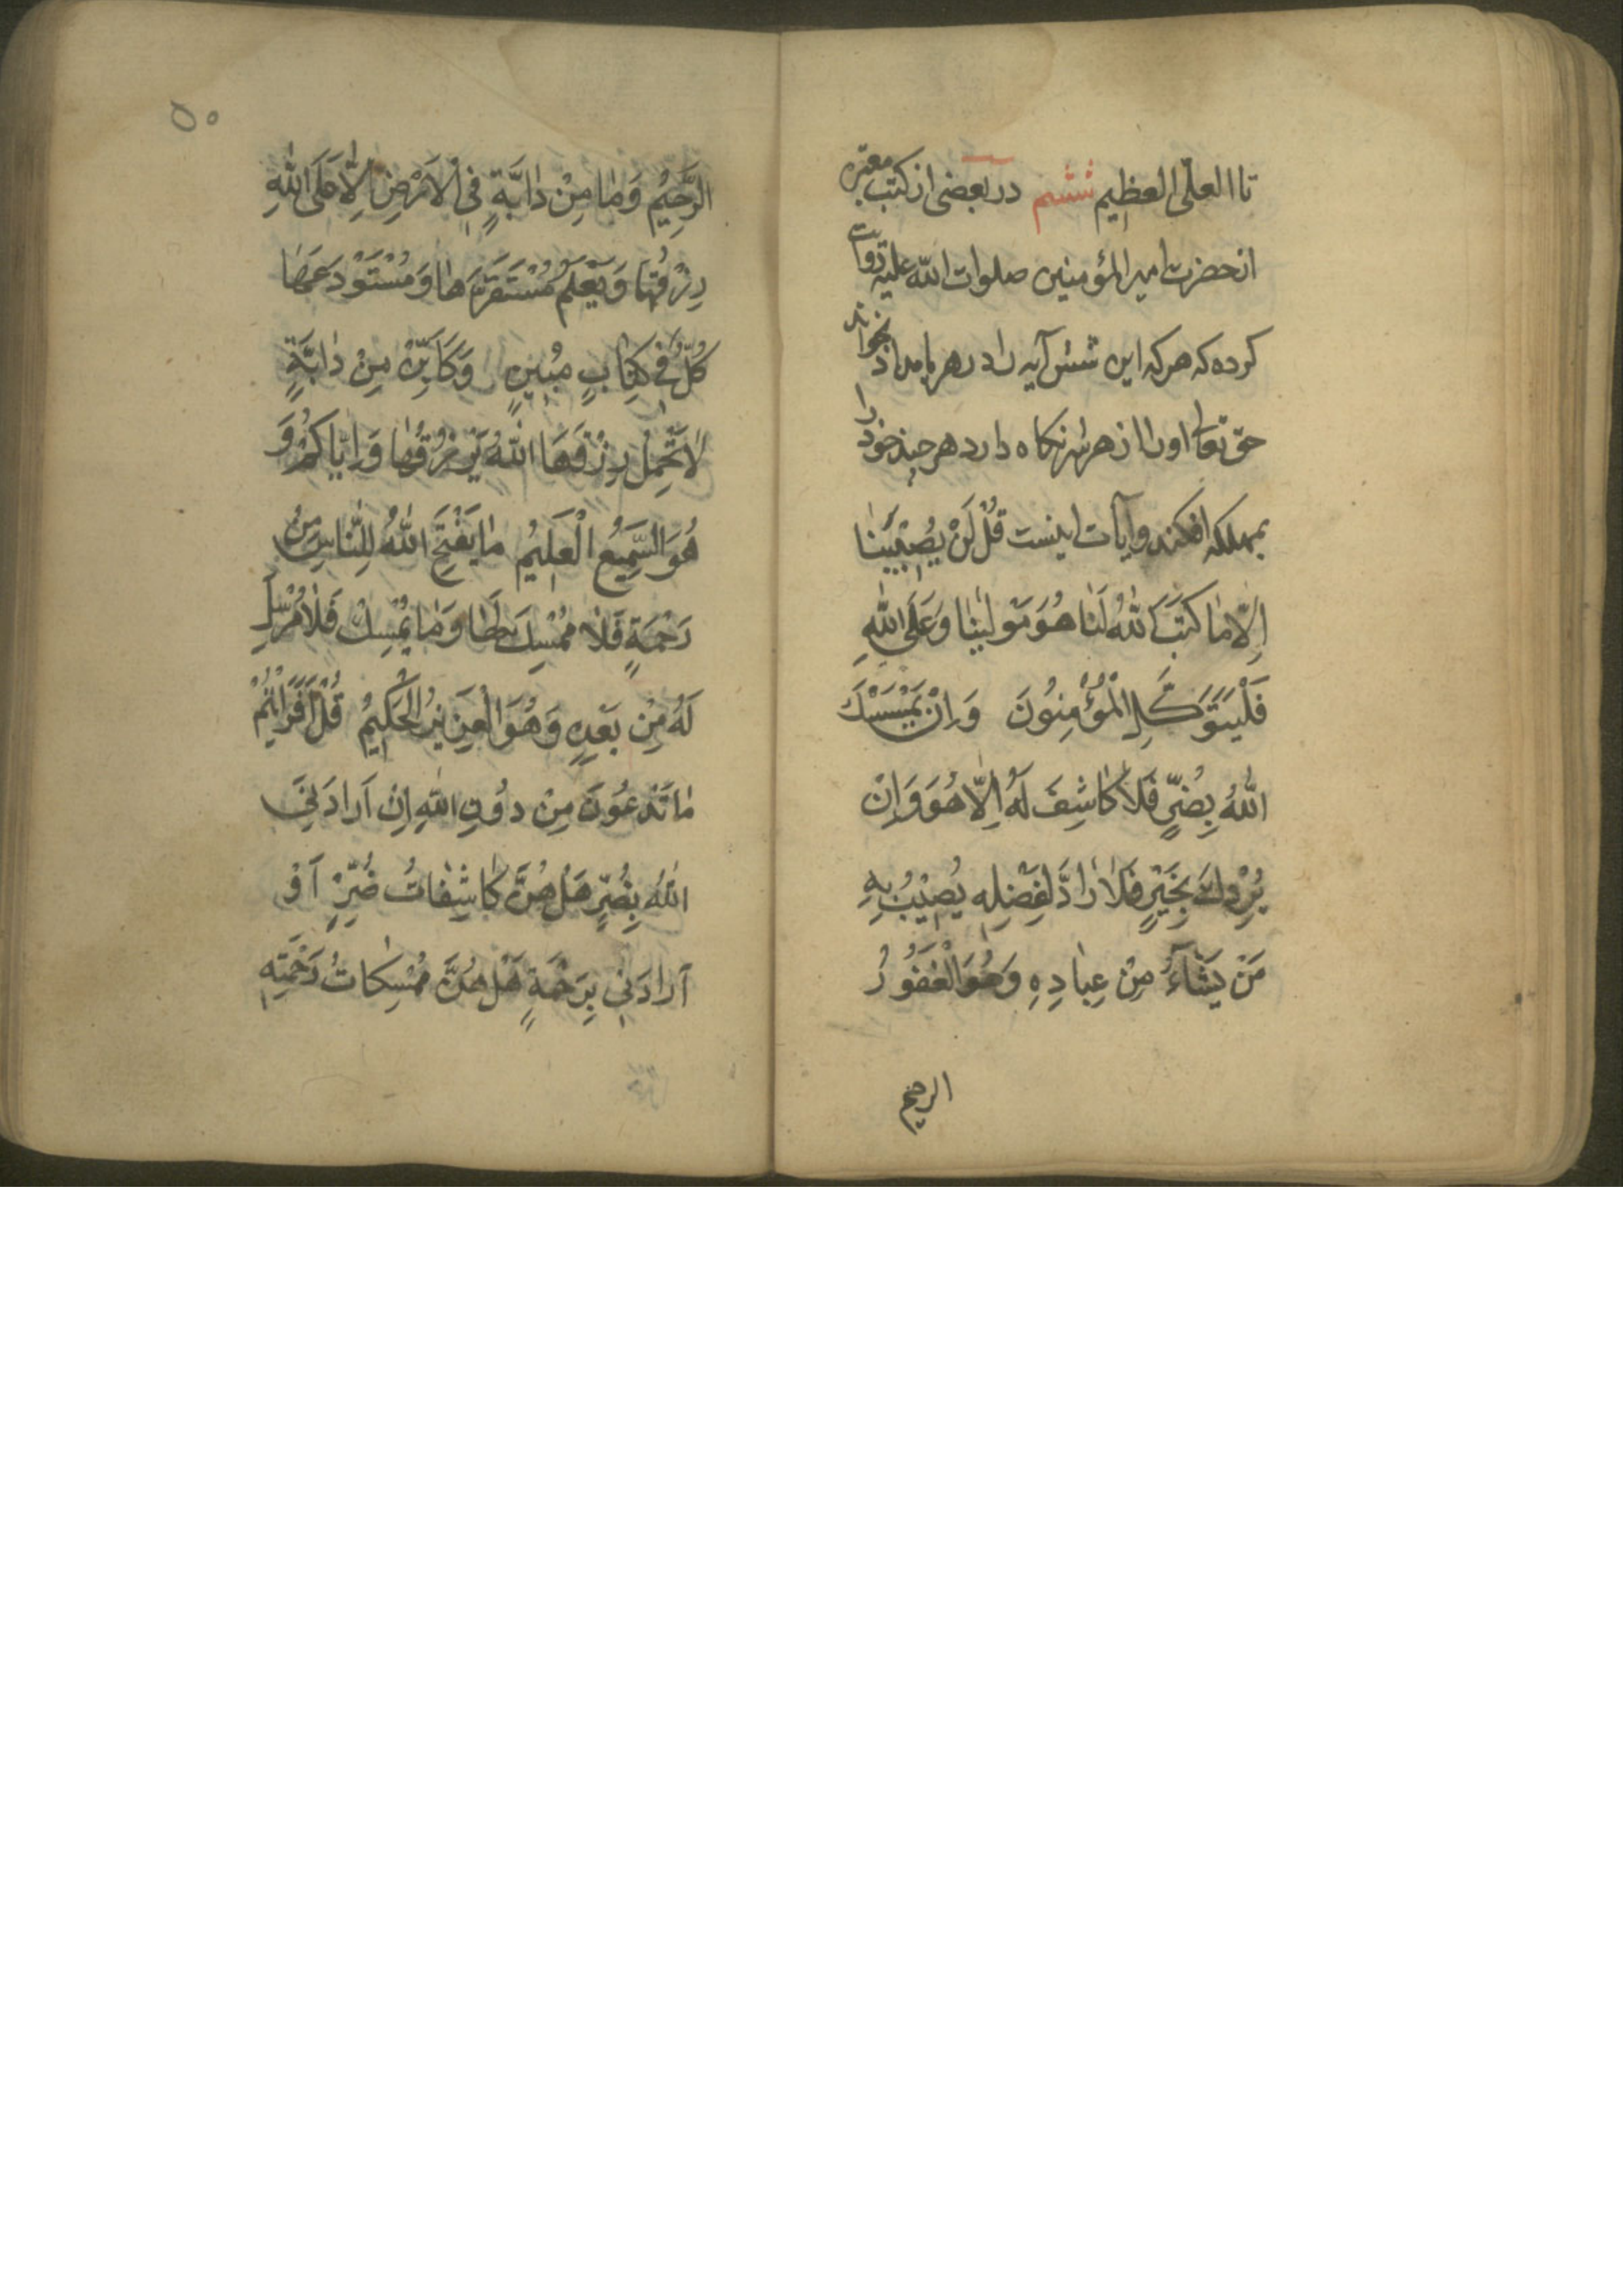 تا العلّى العظيم ششم در بعضى از كتب معتبره
از حضرت امير المؤمنين صلوات اللّه عليه روايت
كرده كه هر كه اين شش آيه را در هر بامداد بخواند
حق تعالى او را از هر شر نكاه دارد هر چند خود را
بمهلكه افكند و آيات اينست قُلْ لَنْ يُصِيبَنَا
اِلّا مٰا كَتَبَ اللّٰهُ لَنٰا هُوَ مَوْلٰينٰا وَعَلَى اللّٰهِ
فَلْيَتَوَكَّلِ الْمُؤْمِنُونَ وَاِنْ يَمْسَسْكَ
اللّٰهُ بِضُرٍّ فَلاٰ كٰاشِفَ لَهُ اِلّاٰ هُوَ وَاِنْ
يُرِدْكَ بِخَيْرٍ فَلاٰ رٰادَّ لِفَضْلِهِ يُصِيْبُ بِهِ
مَنْ يَشٰآءُ مِنْ عِبٰادِهِ وَهُوَ الْغَفُورُ
الرحيم
٥٠
الرَّحِيْمُ وَمٰا مِنْ دٰابَّةٍ فِى الْاَرْضِ اِلّٰا عَلَى اللّٰهِ
رِزْقُهٰا وَيَعْلَمُ مُسْتَقَرَّهٰا وَمُسْتَوْدَعَهٰا
كُلٌّ فِى كِتٰابٍ مُبِينٍ وَكَاَيِّنْ مِنْ دٰابَّةٍ
لاٰ تَحْمِلُ رِزْقَهَا اللّٰهُ يَرْزُقُهٰا وَاِيّٰاكُمْ وَ
هُوَ السَّمِيعُ الْعَلِيمُ مٰا يَفْتَحِ اللّٰهُ لِلنّٰاسِ مِنْ
رَحْمَةٍ فَلاٰ مُمْسِكَ لَهٰا وَمٰا يُمْسِكْ فَلاٰ مُرْسِلَ
لَهُ مِنْ بَعْدِهِ وَهُوَ الْعَزِيزُ الْحَكِيمُ قُلْ اَفَرَاَيْتُمْ
مٰا تَدْعُونَ مِنْ دُونِ اللّٰهِ اِنْ اَرٰادَنِىَ
اللّٰهُ بِضُرٍّ هَلْ هُنَّ كٰاشِفٰاتُ ضُرِّهِ اَوْ
اَرٰادَنِى بِرَحْمَةٍ هَلْ هُنَّ مُمْسِكٰاتُ رَحْمَتِهِ